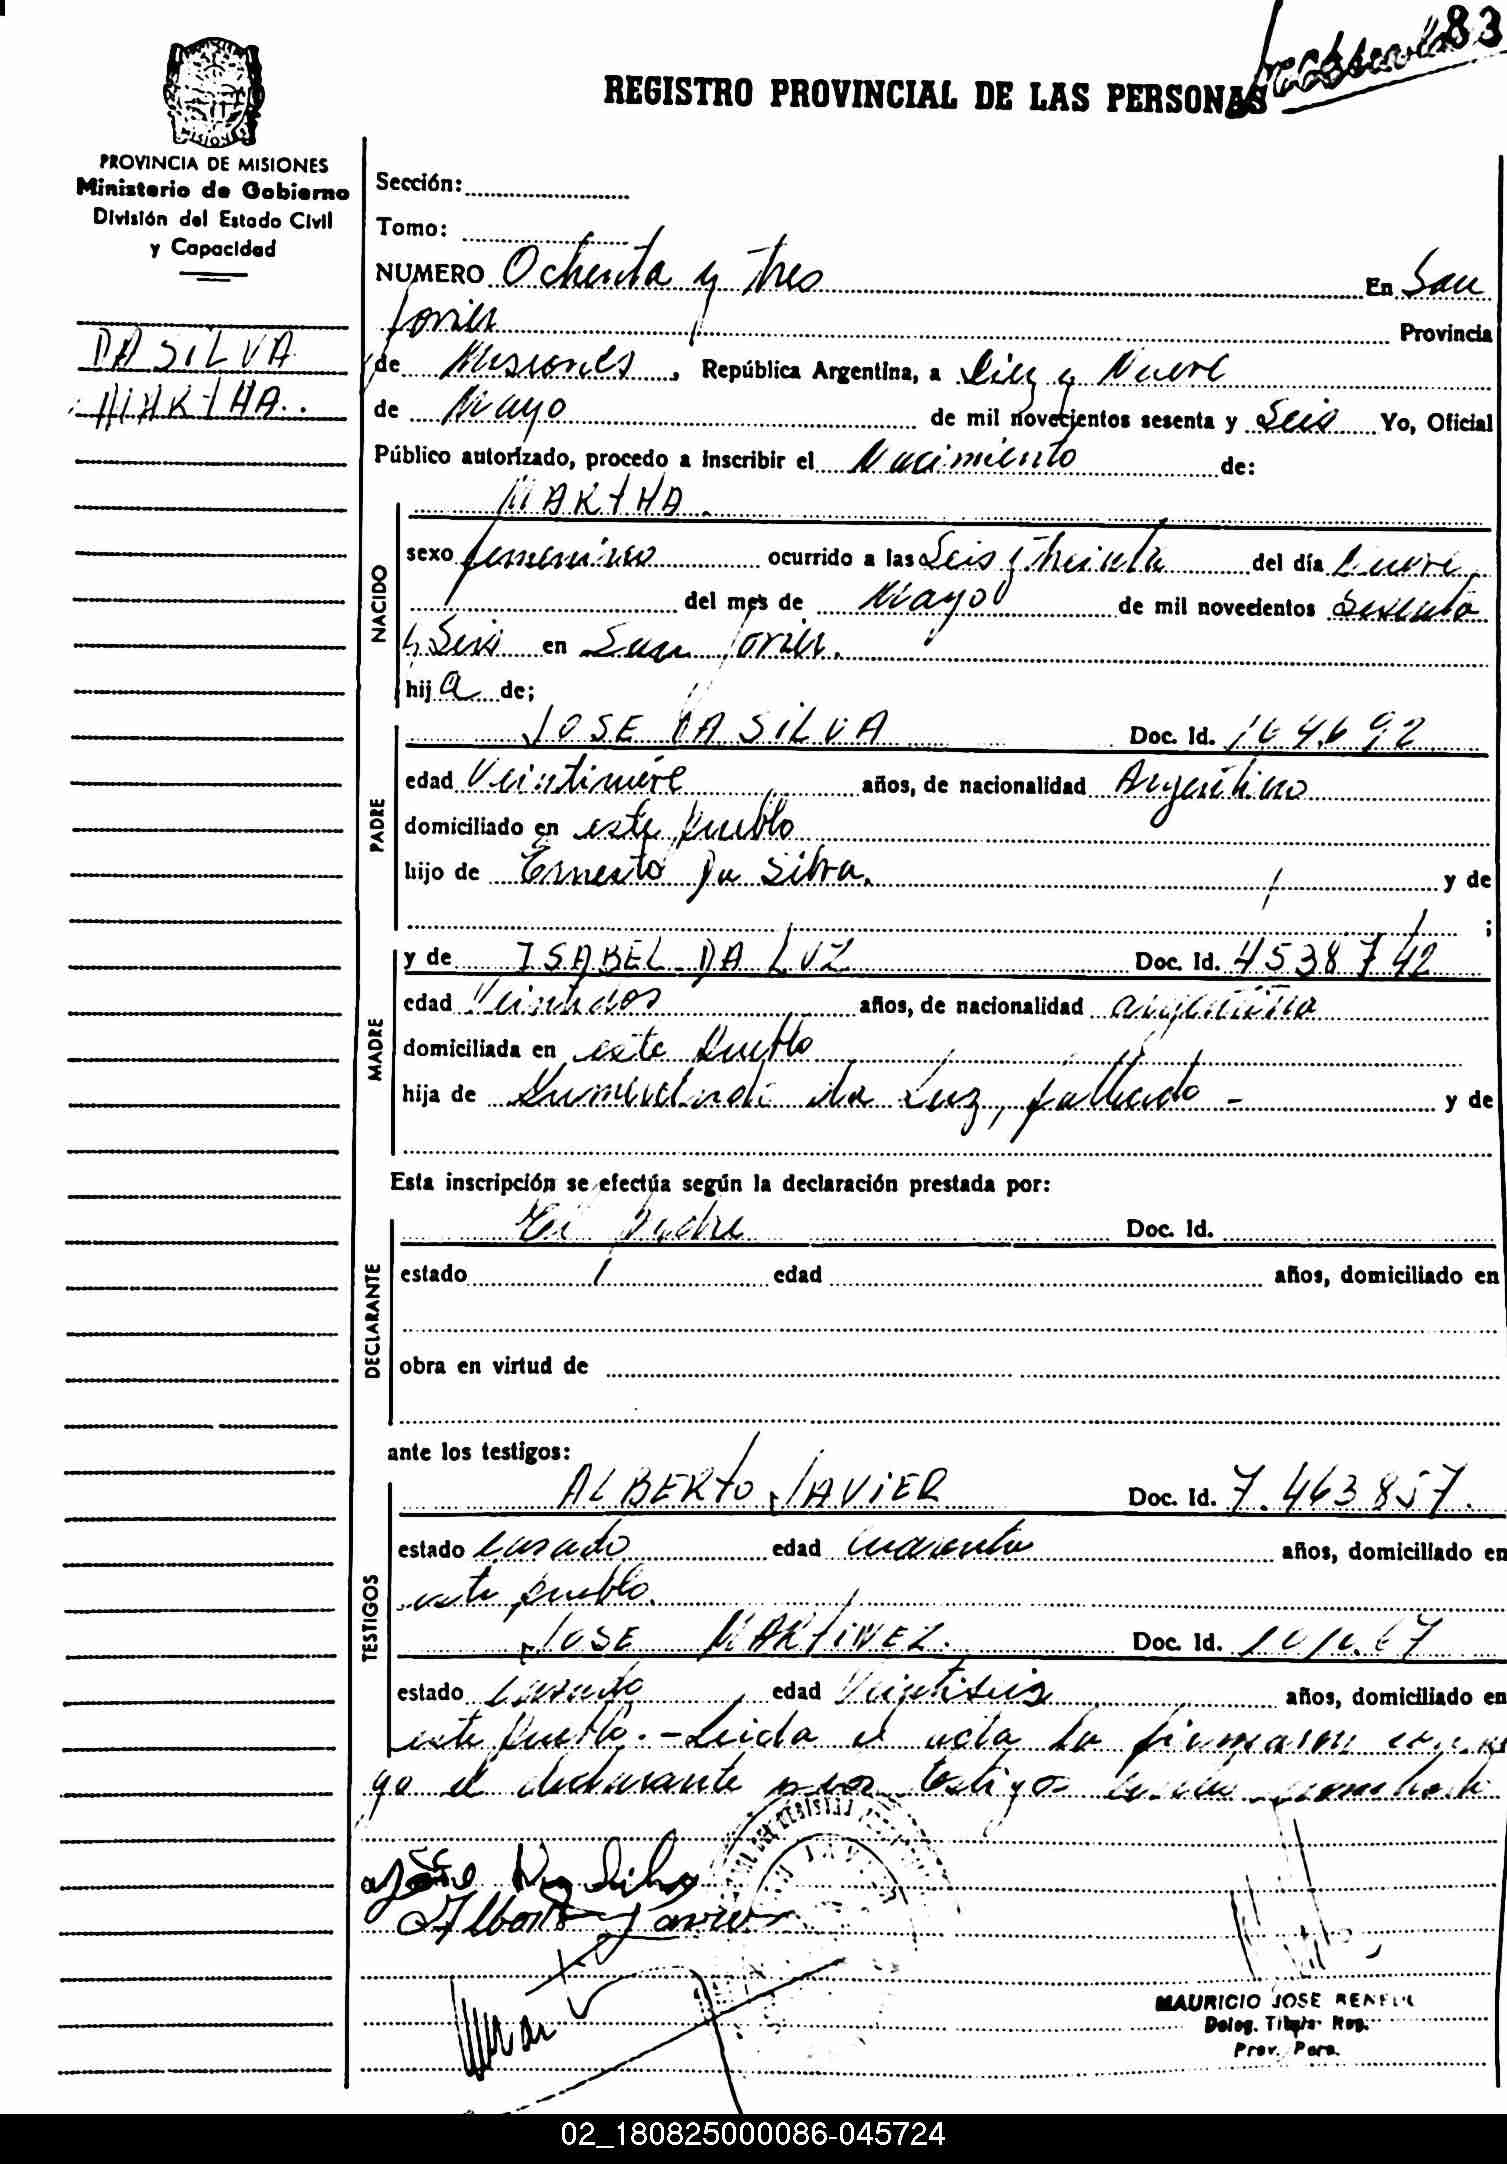 83
REGISTRO PROVINCIAL DE LAS PERSONAS
PROVINCIA DE MISIONES
Ministerio de Gobierno
División del Estado Civil
y Capacidad
DA SILVA
MARTHA..
Sección:
Tomo:
NUMERO Ochenta y tres En San
Javier Provincia
de Misiones, República Argentina, a Diez y Nueve
de Mayo de mil novecientos sesenta y Seis Yo, Oficial
Público autorizado, procedo a inscribir el Nacimiento de:
NACIDO
MARTHA.
sexo femenino ocurrido a las Seis y treinta del día Nueve
del mes de Mayo de mil novecientos Sesenta
y Seis en San Javier.
hija de;
PADRE
JOSE DA SILVA Doc. Id. 164.692
edad Veintinueve años, de nacionalidad Argentino
domiciliado en este pueblo
hijo de Ernesto Da Silva. y de
;
MADRE
y de ISABEL DA LUZ Doc. Id. 4538742
edad Veintidos años, de nacionalidad argentina
domiciliada en este Pueblo
hija de da Luz, fallecido - y de
Esta inscripción se efectúa según la declaración prestada por:
DECLARANTE
El padre Doc. Id.
estado edad años, domiciliado en
obra en virtud de
ante los testigos:
TESTIGOS
ALBERTO JAVIER Doc. Id. 7.463857.
estado casado edad cuarenta años, domiciliado en
este pueblo.
JOSE MARTINEZ. Doc. Id.
estado casado edad Veintiseis años, domiciliado en
este Pueblo.- Leida el acta la firmaron conmi
go el declarante y los testigos
José Da Silva
Alberto Javier
MAURICIO JOSE
Deleg. Titular Reg.
Prov. Pers.
02_180825000086-045724